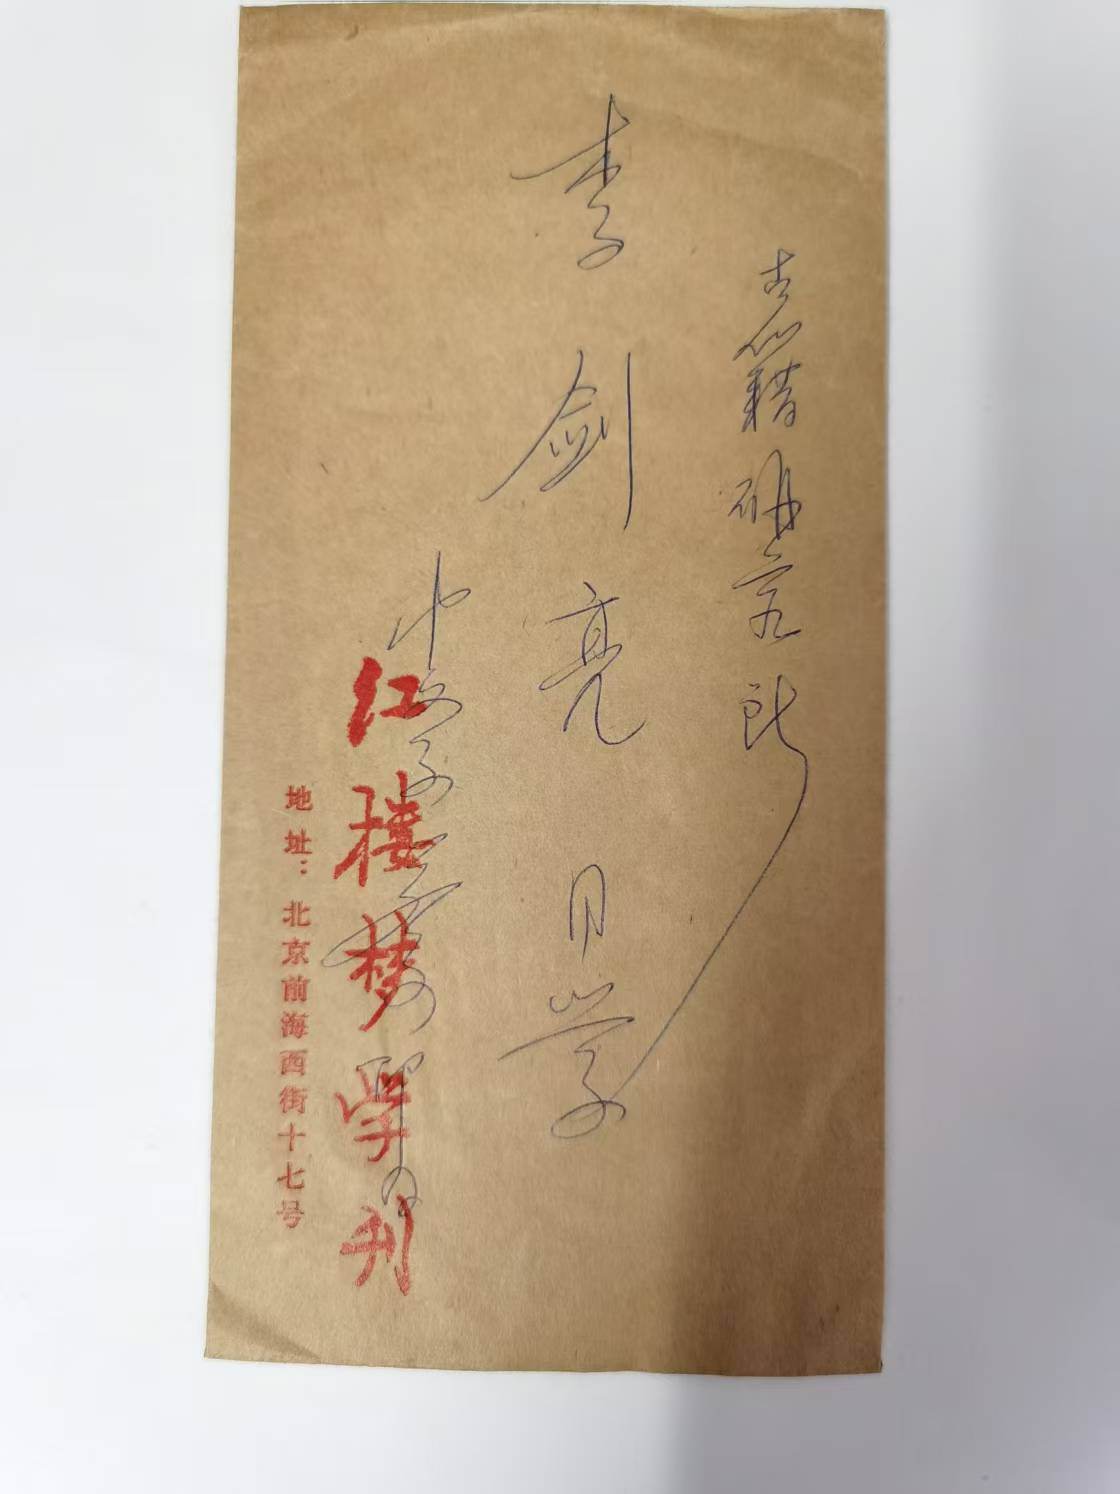 古籍研究所
李剑亮同学
红楼梦学刊
地址：北京前海西街十七号